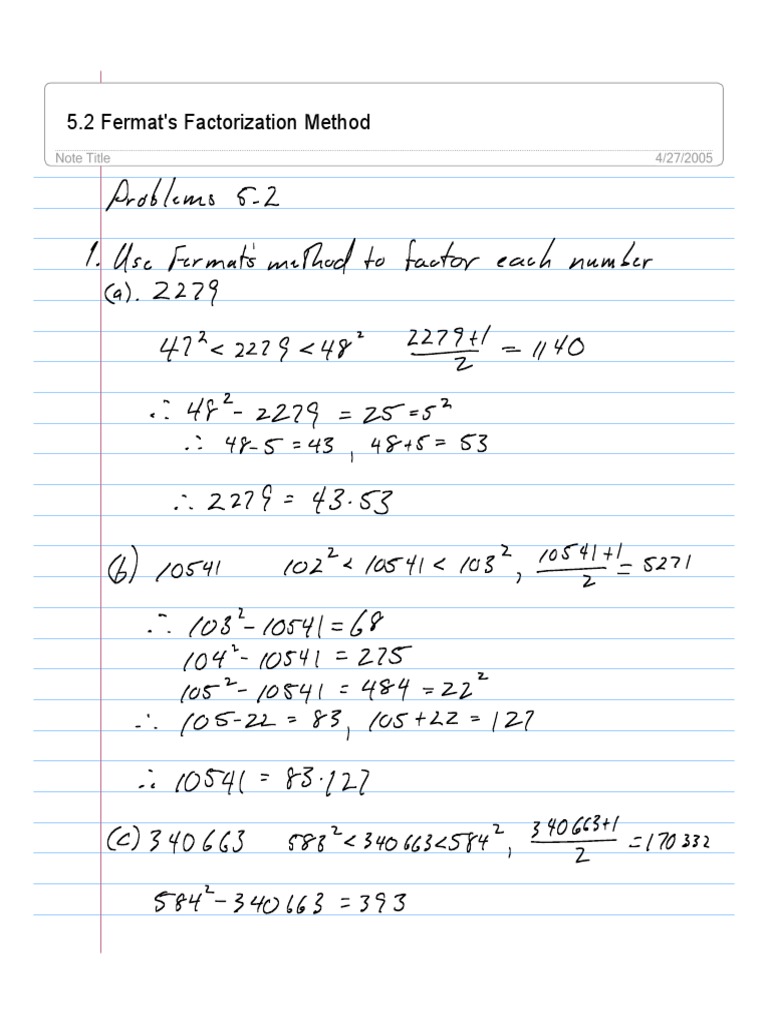 5.2 Fermat's Factorization Method
Note Title 4/27/2005
Problems 5-2
1. Use Fermat's method to factor each number
(a). 2279
47² < 2279 < 48² (2279+1)/2 = 1140
∴ 48² - 2279 = 25 = 5²
∴ 48-5 = 43, 48+5 = 53
∴ 2279 = 43·53
(b) 10541 102² < 10541 < 103², (10541+1)/2 = 5271
∴ 103² - 10541 = 68
104² - 10541 = 275
105² - 10541 = 484 = 22²
∴ 105-22 = 83, 105+22 = 127
∴ 10541 = 83·127
(c) 340663 583² < 340663 < 584², (340663+1)/2 = 170332
584² - 340663 = 393